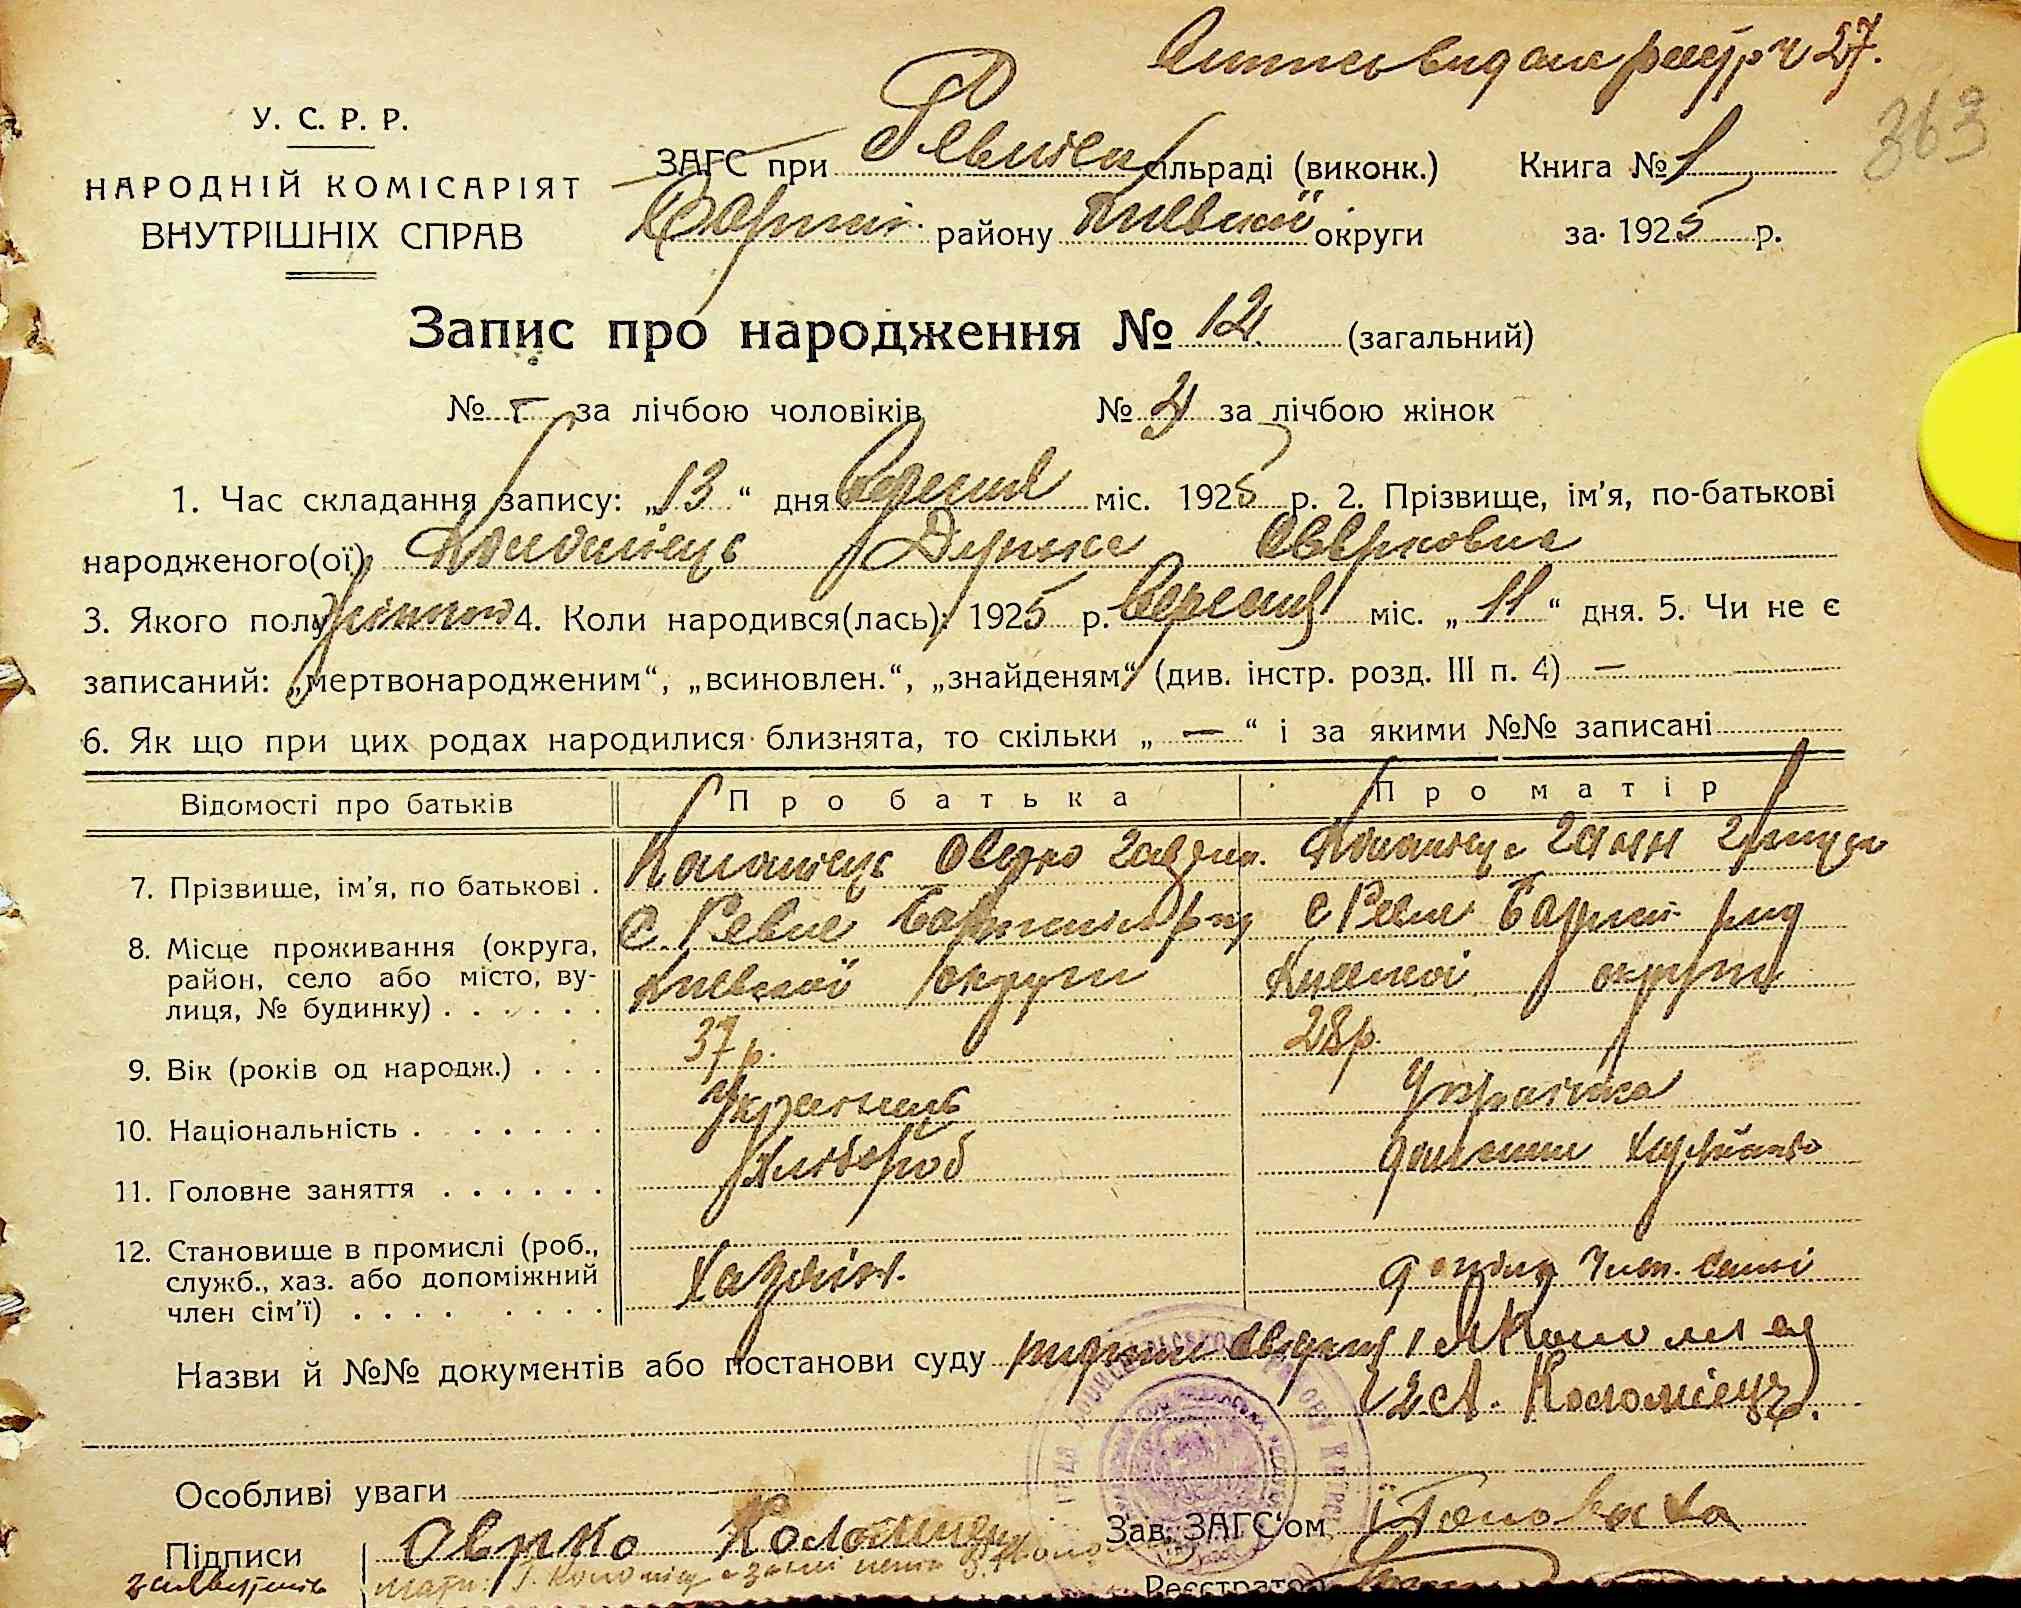 Витяг видано реєстр ч 27.
363
У. С. Р. Р.
НАРОДНІЙ КОМІСАРІЯТ
ВНУТРІШНІХ СПРАВ
ЗАГС при Ревнен сільраді (виконк.) Книга № 1
Бориш. району Київської округи за 1925 р.
Запис про народження № 12 (загальний)
№ – за лічбою чоловіків № 4 за лічбою жінок
1. Час складання запису: „13“ дня вересня міс. 1925 р. 2. Прізвище, ім’я, по-батькові
народженого(ої) Коломієць Оврковна
3. Якого полу жіночого 4. Коли народився(лась): 1925 р. вересня міс. „11“ дня. 5. Чи не є
записаний: „мертвонародженим“, „всиновлен.“, „знайденям“ (див. інстр. розд. III п. 4) —
6. Як що при цих родах народилися близнята, то скільки „—“ і за якими №№ записані
Відомості про батьків Про батька Про матір
7. Прізвище, ім’я, по батькові . Коломієць Оврко Коломієць Ганна
8. Місце проживання (округа, с Ревне с Ревне
район, село або місто, ву- Київської округи Київської округи
лиця, № будинку) . . . . . .
9. Вік (років од народж.) . . . 37 р. 28 р.
10. Національність . . . . . . . Українець Українка
11. Головне заняття . . . . . . Хлібороб домашнє хазяйство
12. Становище в промислі (роб.,
служб., хаз. або допоміжний Хазяїн. член сім’ї
член сім’ї) . . . . . . . .
Назви й №№ документів або постанови суду 1
2 А. Коломієць.
Особливі уваги
Підписи Оврко Коломиець Зав. ЗАГС‘ом
Реєстратор